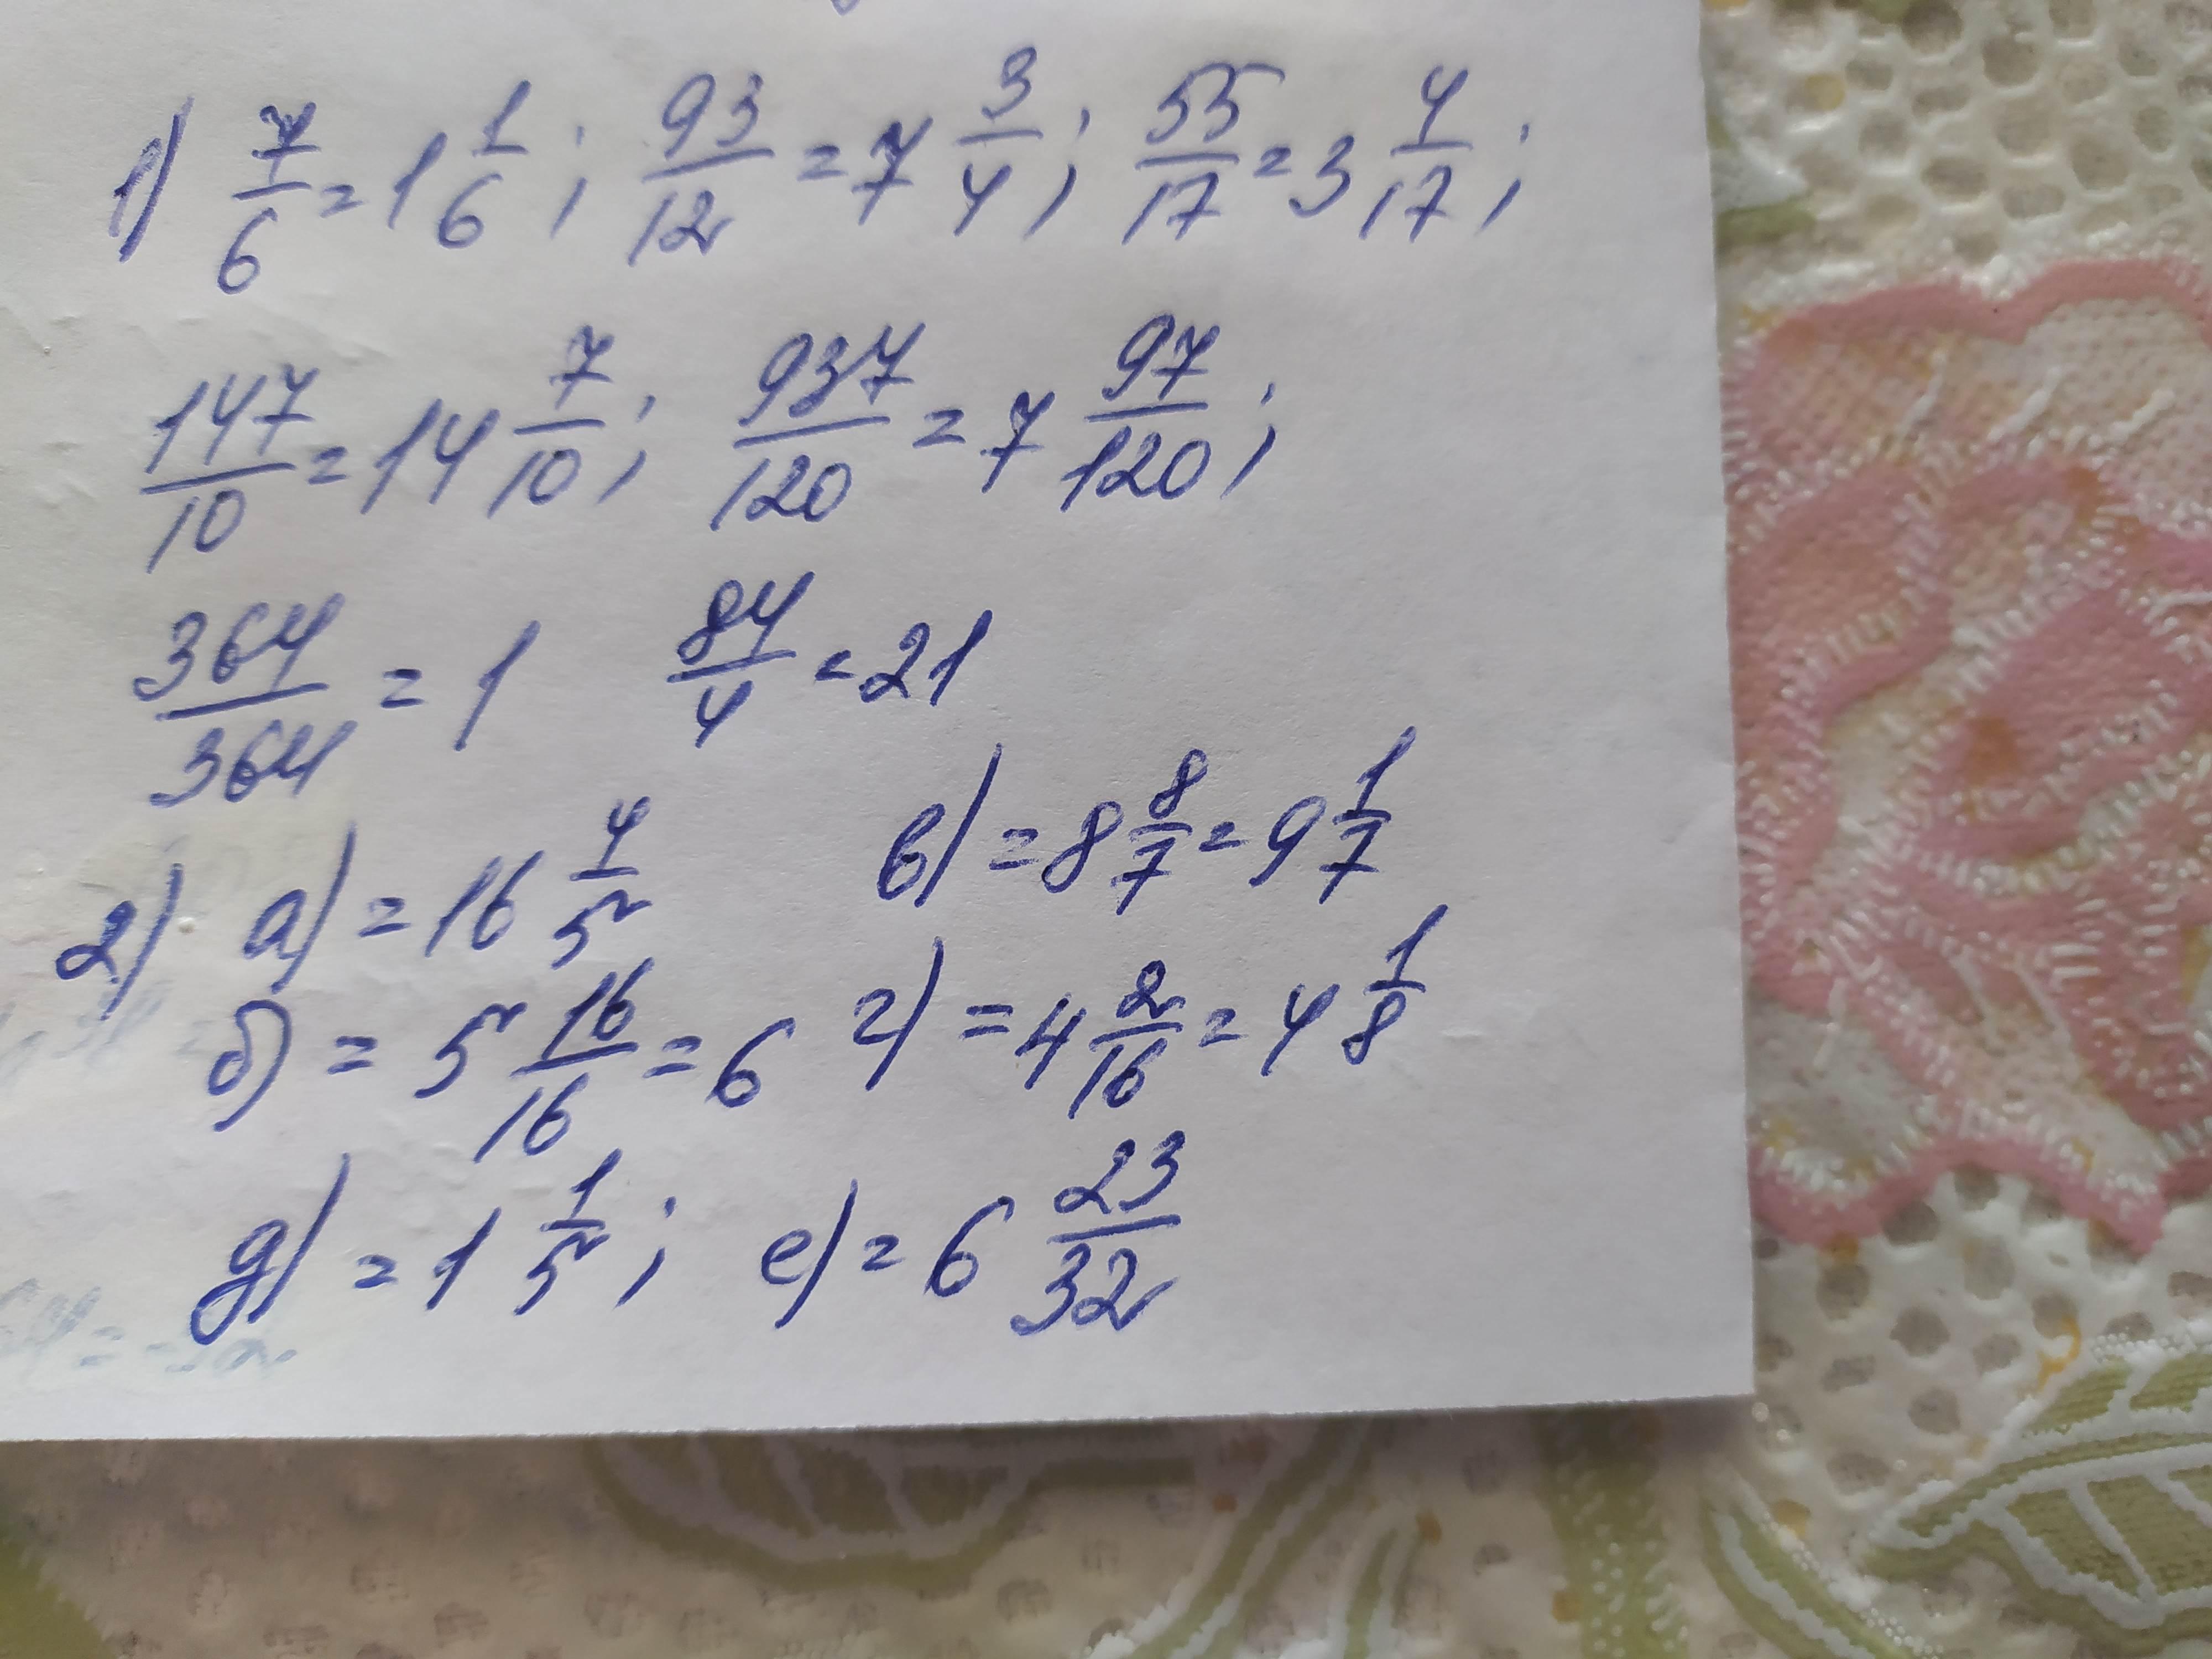 1) 7/6 = 1 1/6 ; 93/12 = 7 3/4 ; 55/17 = 3 4/17 ;
147/10 = 14 7/10 ; 937/120 = 7 97/120 ;
364/364 = 1 84/4 = 21
2) а) = 16 4/5 в) = 8 8/7 = 9 1/7
б) = 5 16/16 = 6 г) = 4 2/16 = 4 1/8
д) = 1 1/5 ; е) = 6 23/32